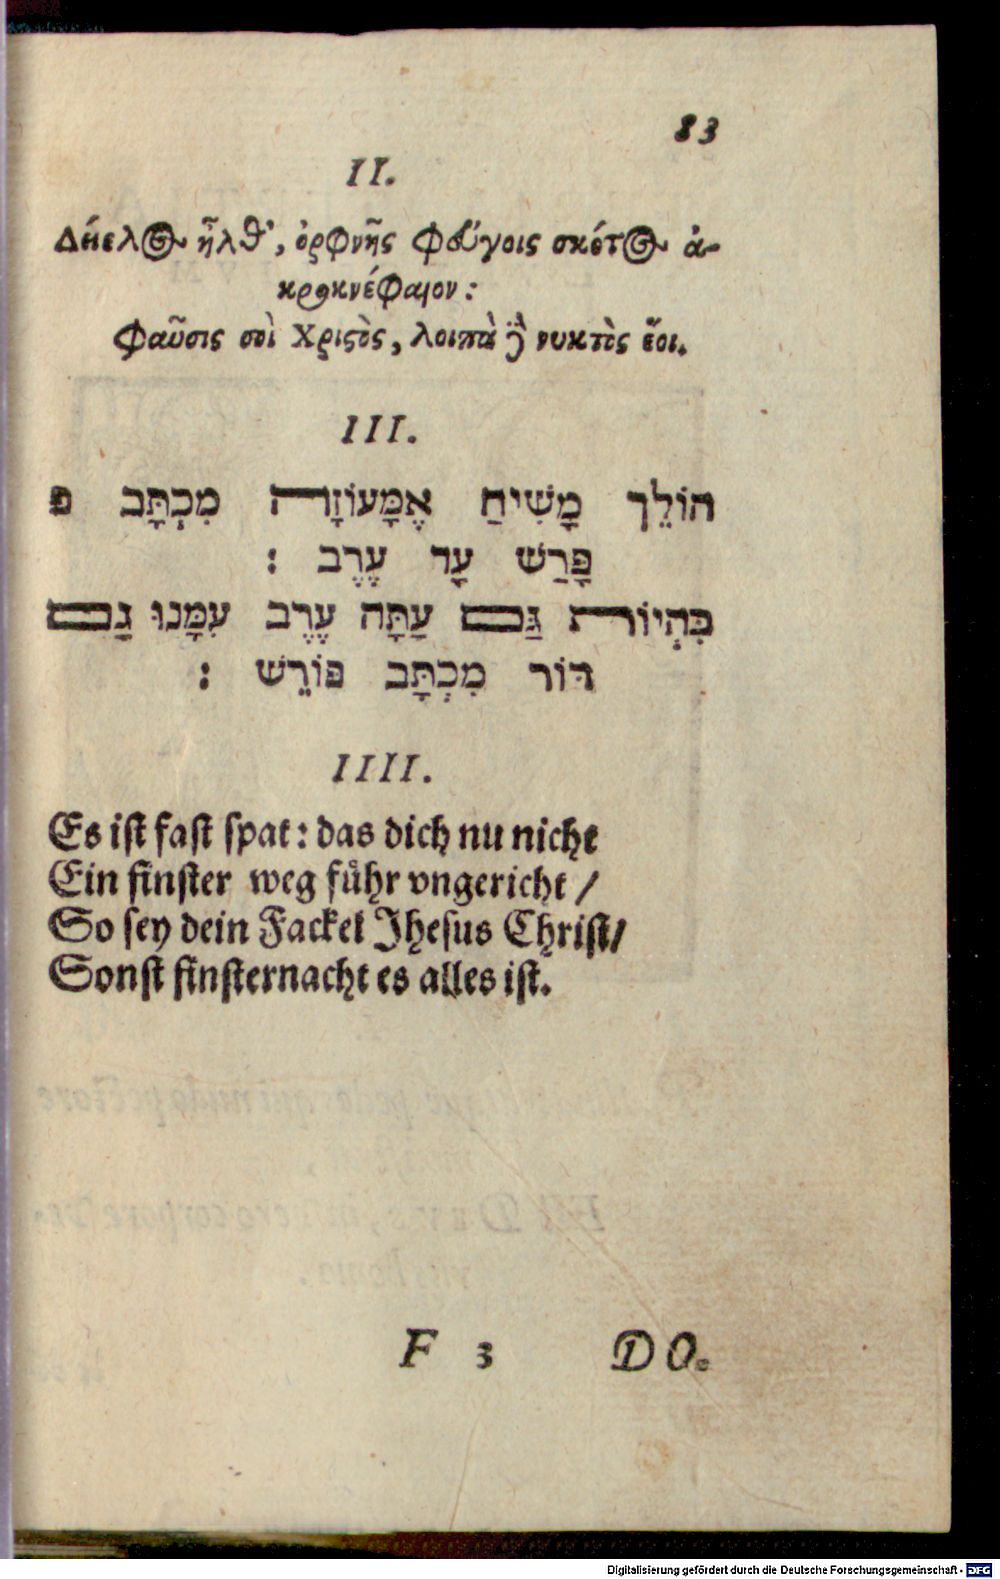 83
II.
Δήελος ἦλθ', ὀρφνῆς φεύγοις σκότος ἀ-
κροκνέφαιον:
Φαῦσις σοὶ Χριστὸς, λοιπὰ νυκτὸς ἔοι.
III.
הוֹלֵך מָשִׁיחַ אֶמָּעוֹזָרה מִכְתָּב פ
פָּרַשׁ עָד עֶרֶב :
כִּהְיוֹת גַּם עַתָּה עֶרֶב עִמָּנוּ גַם
דּוֹר מִכְתָּב פּוֹרֵשׁ :
IIII.
Es ist fast spat: das dich nu nicht
Ein finster weg fuͤhr vngericht /
So sey dein Fackel Jhesus Christ/
Sonst finsternacht es alles ist.
F 3 DO.
Digitalisierung gefördert durch die Deutsche Forschungsgemeinschaft - DFG